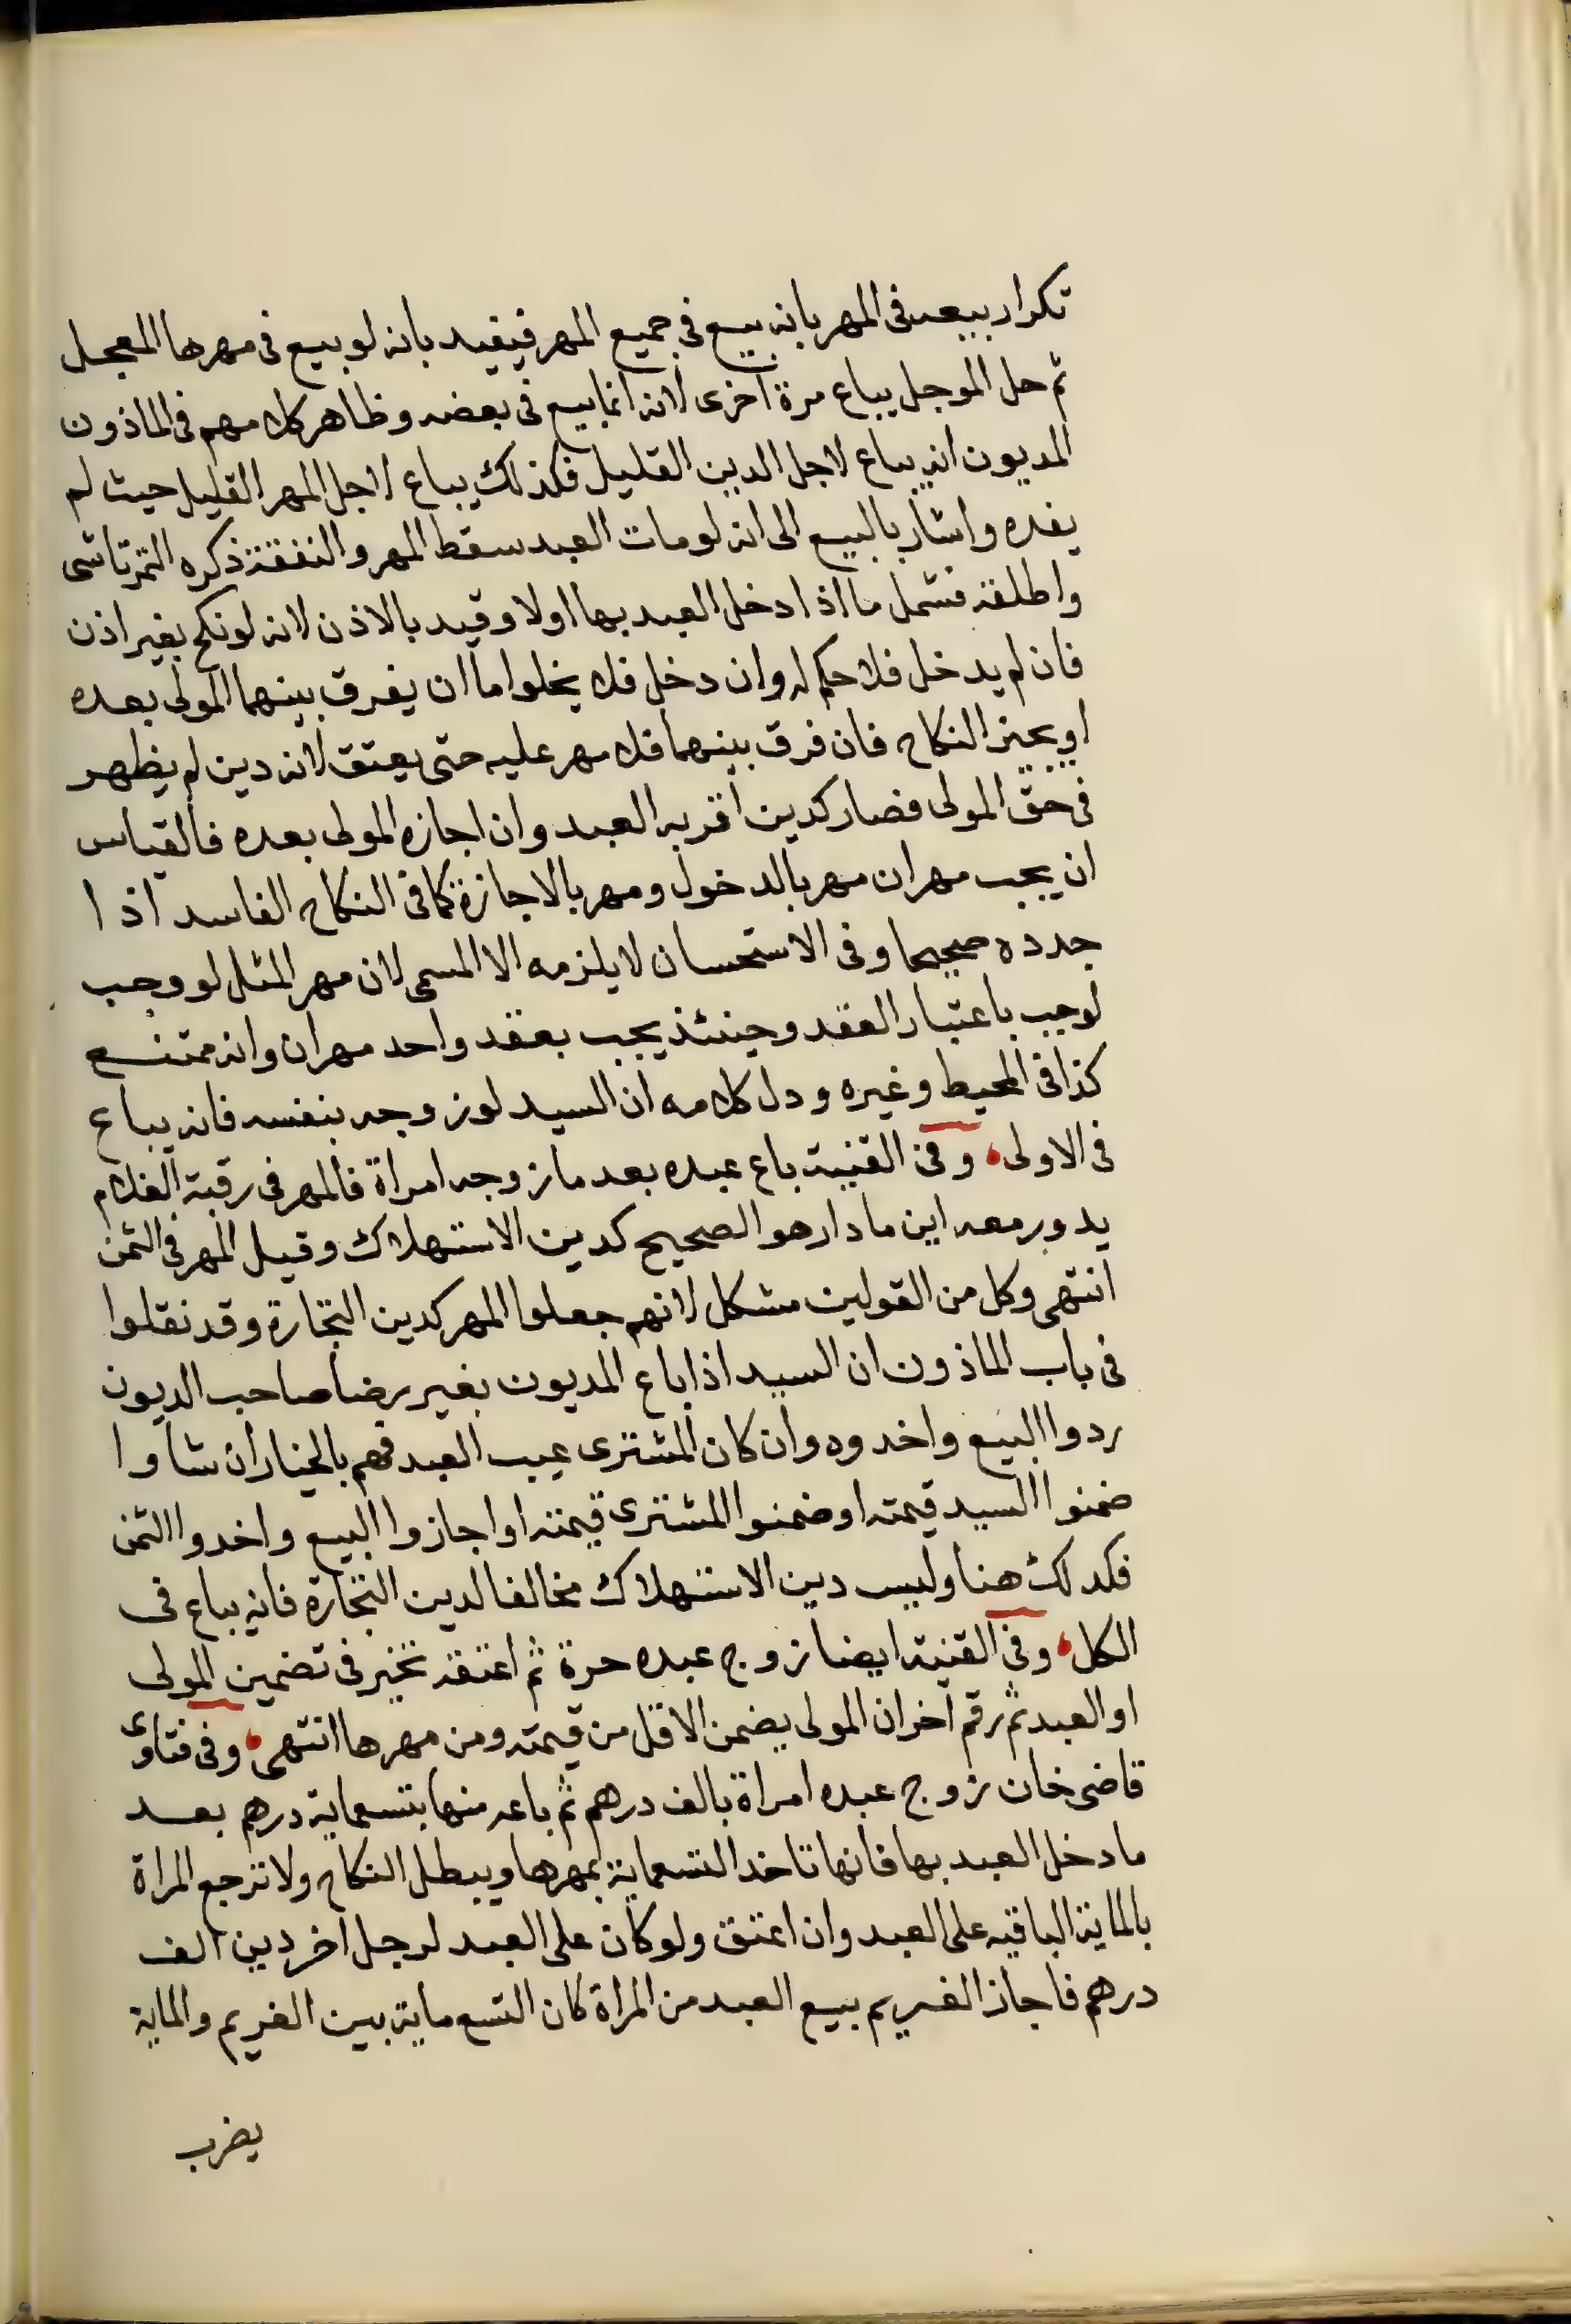 تكرار بيعه فى المهر بانه بيع فى جميع المهر فيفيد بانه لو بيع فى مهرها المعجل
ثم حل الموجل يباع مرة اخرى لانه انما بيع فى بعضه وظاهر كلامهم فى الماذون
المديون انه يباع لاجل الدين القليل فكذلك يباع لاجل المهر القليل حيث لم
يفده واشار بالبيع الى انه لو مات العبد سقط المهر والنفقة ذكره التمرتاشى
واطلقه فشمل ما اذا دخل العبد بها اولا وقيد بالاذن لانه لو نكح بغير اذن
فان لم يدخل فلا حكم له وان دخل فلا يخلوا ما ان يفرق بينهما المولى بعده
او يجيز النكاح فان فرق بينهما فلا مهر عليه حتى يعتق لانه دين لم يظهر
فى حق المولى فصار كدين اقر به العبد وان اجازه المولى بعده فالقياس
ان يجب مهران مهر بالدخول ومهر بالاجازة كما فى النكاح الفاسد اذا
جدده صحيحا وفى الاستحسان لا يلزمه الا المسمى لان مهر المثل لو وجب
لوجب باعتبار العقد وحينئذ يجب بعقد واحد مهران وانه ممتنع
كذا فى المحيط وغيره ودل كلامه ان السيد لو زوجه بنفسه فانه يباع
فى الاولى وفى القنية باع عبده بعد ما زوجه امراة فالمهر فى رقبة الغلام
يدور معه اين ما دار هو الصحيح كدين الاستهلاك وقيل المهر فى الثمن
انتهى وكل من القولين مشكل لانهم جعلوا المهر كدين التجارة وقد نقلوا
فى باب الماذون ان السيد اذا باع المديون بغير رضا صاحب الديون
ردوا البيع واخدوه وان كان المشترى عيب العبد فهم بالخيار ان شاوا
ضمنوا السيد قيمته او ضمنوا المشترى قيمته او اجازوا البيع واخدوا الثمن
فكدلك هنا وليس دين الاستهلاك مخالفا لدين التجارة فانه يباع فى
الكل وفى القنية ايضا زوج عبده حرة ثم اعتقه تخير فى تضمين المولى
او العبد ثم رقم اخر ان المولى يضمن الاقل من قيمته ومن مهرها انتهى وفى فتاوى
قاضى خان زوج عبده امراة بالف درهم ثم باعه منها بتسعماية درهم بعد
ما دخل العبد بها فانها تاخد التسعماية بمهرها ويبطل النكاح ولا ترجع المراة
بالماية الباقيه على العبد وان اعتق ولو كان على العبد لرجل اخر دين الف
درهم فاجاز الغريم بيع العبد من المراة كان التسع ماية بين الغريم والماية
يضرب